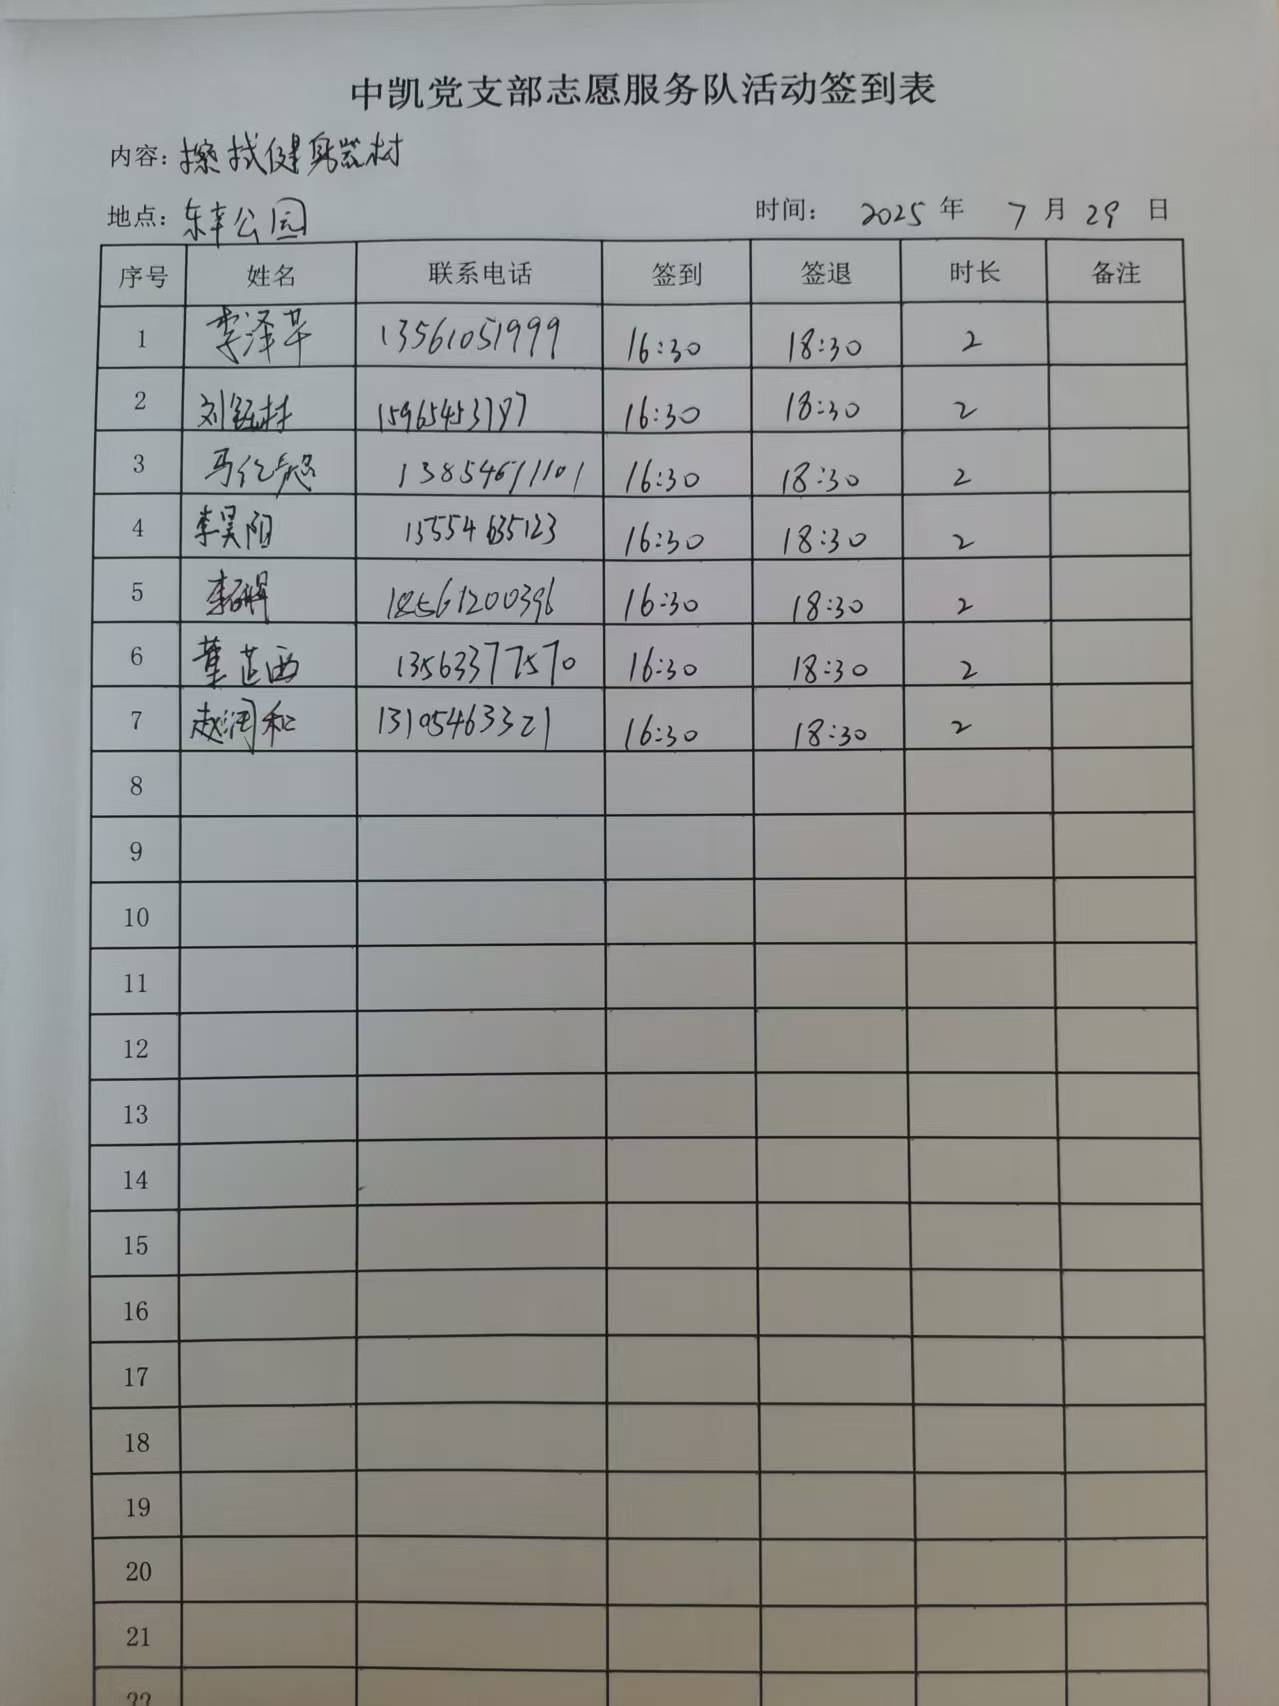 中凯党支部志愿服务队活动签到表
内容: 擦拭健身器材
地点: 东辛公园 时间: 2025 年 7 月 29 日
序号 姓名 联系电话 签到 签退 时长 备注
1 李泽 13561051999 16:30 18:30 2
2 刘钰村 15965453787 16:30 18:30 2
3 马 13854611101 16:30 18:30 2
4 李昊阳 13554635123 16:30 18:30 2
5 李 18561200396 16:30 18:30 2
6 董芷西 13563377570 16:30 18:30 2
7 赵润和 13105463321 16:30 18:30 2
8
9
10
11
12
13
14
15
16
17
18
19
20
21
22